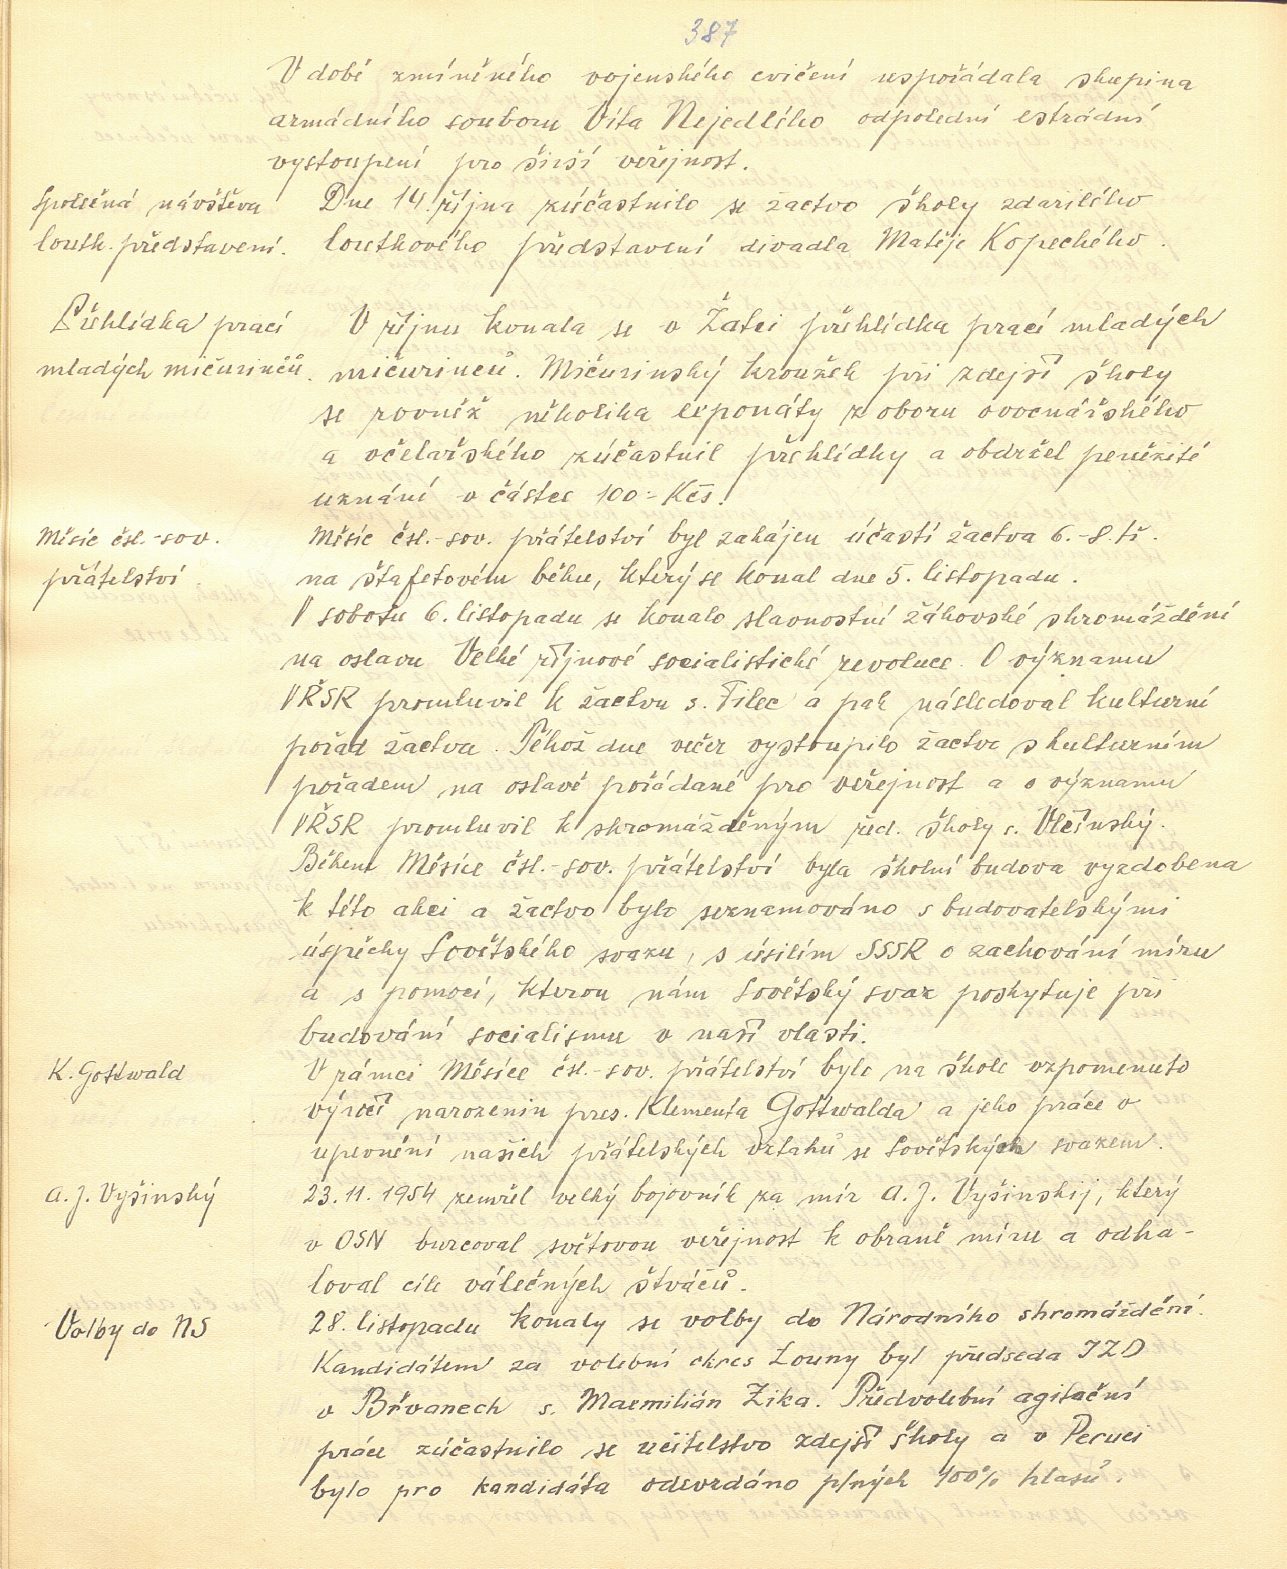 387
V době zmíněného vojenského cvičení uspořádala skupina
armádního souboru Víta Nejedlího odpolední estrádní
vystoupení pro širší veřejnost.
Společná návštěva
louth. představení.
Dne 14. října zúčastnilo se žactvo školy zdařilého
loutkového představení divadla Matěje Kopeckého.
Přehlídka prací
mladých mičurinců.
V říjnu konala se v Žatci přehlídka prací mladých
mičurinců. Mičurinský kroužek při zdejší školy
se rovněž několika exponáty z oboru ovocnářského
a včelařského zúčastnil přehlídky a obdržel peněžité
uznání v částce 100.- Kčs.
Měsíc čsl.-sov.
přátelství.
Měsíc čsl.-sov. přátelství byl zahájen účastí žactva 6.-8. tř.
na štafetovém běhu, který se konal dne 5. listopadu.
V sobotu 6. listopadu se konalo slavnostní žákovské shromáždění
na oslavu Velké říjnové socialistické revoluce. O významu
VŘSR promluvil k žactvu s. Filec a pak následoval kulturní
pořad žactva. Téhož dne večer vystoupilo žactvo s kulturním
pořadem na oslavě pořádané pro veřejnost a o významu
VŘSR promluvil k shromážděným řed. školy s. Vlčinský.
Během Měsíce čsl.-sov. přátelství byla školní budova vyzdobena
k této akci a žactvo bylo seznamováno s budovatelskými
úspěchy Sovětského svazu, s úsilím SSSR o zachování míru
a s pomocí, kterou nám Sovětský svaz poskytuje při
budování socialismu v naší vlasti.
K. Gottwald
V rámci Měsíce čsl.-sov. přátelství bylo na škole vzpomenuto
výročí narozenin pres. Klementa Gottwalda a jeho práce o
upevnění našich přátelských vztahů se Sovětských svazem.
A. J. Vyšinský
23. 11. 1954 zemřel velký bojovník za mír A. J. Vyšinskij, který
v OSN burcoval světovou veřejnost k obraně míru a odha-
loval cíle válečných štváčů.
Volby do NS
28. listopadu konaly se volby do Národního shromáždění.
Kandidátem za volební okres Louny byl předseda JZD
v Břvanech s. Maxmilián Zika. Předvolební agitační
práce zúčastnilo se učitelstvo zdejší školy a v Peruci
bylo pro kandidáta odevzdáno plných 100% hlasů.